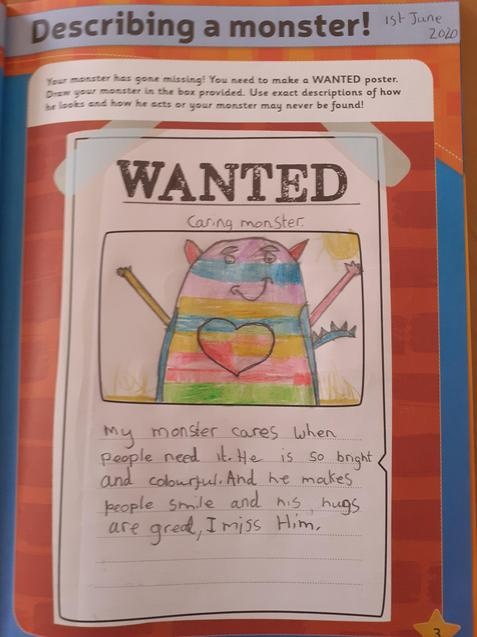 Describing a monster!
1st June
2020
Your monster has gone missing! You need to make a WANTED poster.
Draw your monster in the box provided. Use exact descriptions of how
he looks and how he acts or your monster may never be found!
WANTED
Caring monster.
My monster cares when
people need it. He is so bright
and colourful. And he makes
people smile and his hugs
are great, I miss Him.
3